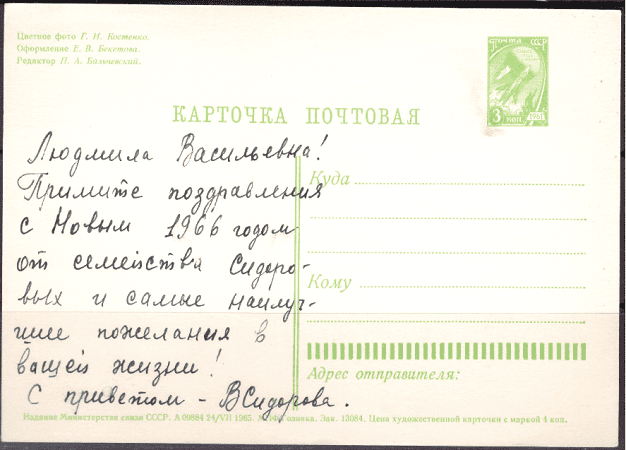 Цветное фото Г. И. Костенко.
Оформление Е. В. Бекетова.
Редактор П. А. Бальчевский.
ПОЧТА СССР
3 КОП. 1961
КАРТОЧКА ПОЧТОВАЯ
Людмила Васильевна!
Примите поздравления
с Новым 1966 годом
от семейства Сидоро-
вых и самые наилуч-
шие пожелания в
вашей жизни!
С приветом – ВСидорова.
Куда
Кому
Адрес отправителя:
Издание Министерства связи СССР. А 09884 24/VII 1965. Зак. 13084. Цена художественной карточки с маркой 4 коп.